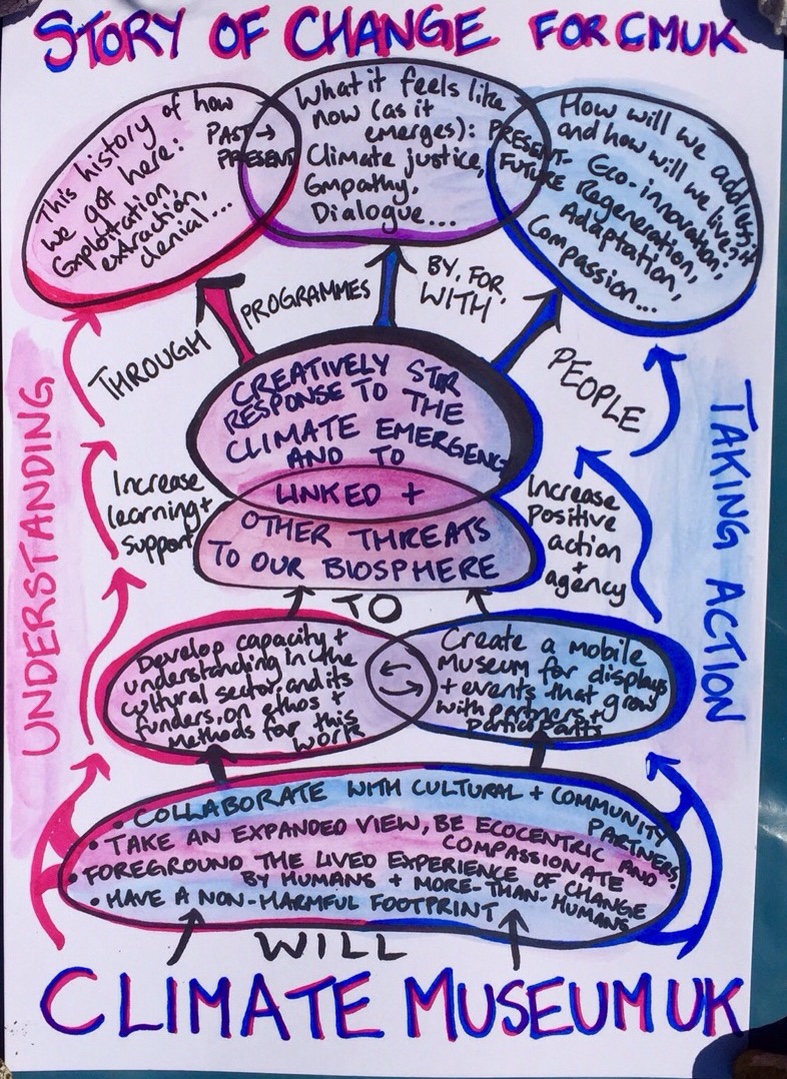 STORY OF CHANGE FOR CMUK
This history of how
we got here:
Exploitation,
extraction,
denial...
PAST →
PRESENT
What it feels like
now (as it
emerges):
Climate justice,
Empathy,
Dialogue...
PRESENT-
FUTURE
How will we address it
and how will we live?
Eco-innovation,
Regeneration,
Adaptation,
Compassion...
THROUGH
PROGRAMMES
BY, FOR,
WITH
PEOPLE
CREATIVELY STIR
RESPONSE TO THE
CLIMATE EMERGENCY
AND TO
LINKED +
OTHER THREATS
TO OUR BIOSPHERE
UNDERSTANDING
Increase
learning +
support
Increase
Positive
action
+
agency
TAKING ACTION
TO
Develop capacity +
understanding in the
cultural sector, and its
funders, on ethos +
methods for this
work
Create a mobile
Museum for displays
+ events that grow
with partners +
participants
• COLLABORATE WITH CULTURAL + COMMUNITY
PARTNERS
• TAKE AN EXPANDED VIEW, BE ECOCENTRIC AND
COMPASSIONATE
• FOREGROUND THE LIVED EXPERIENCE OF CHANGE
BY HUMANS + MORE-THAN-HUMANS
• HAVE A NON-HARMFUL FOOTPRINT
WILL
CLIMATE MUSEUM UK